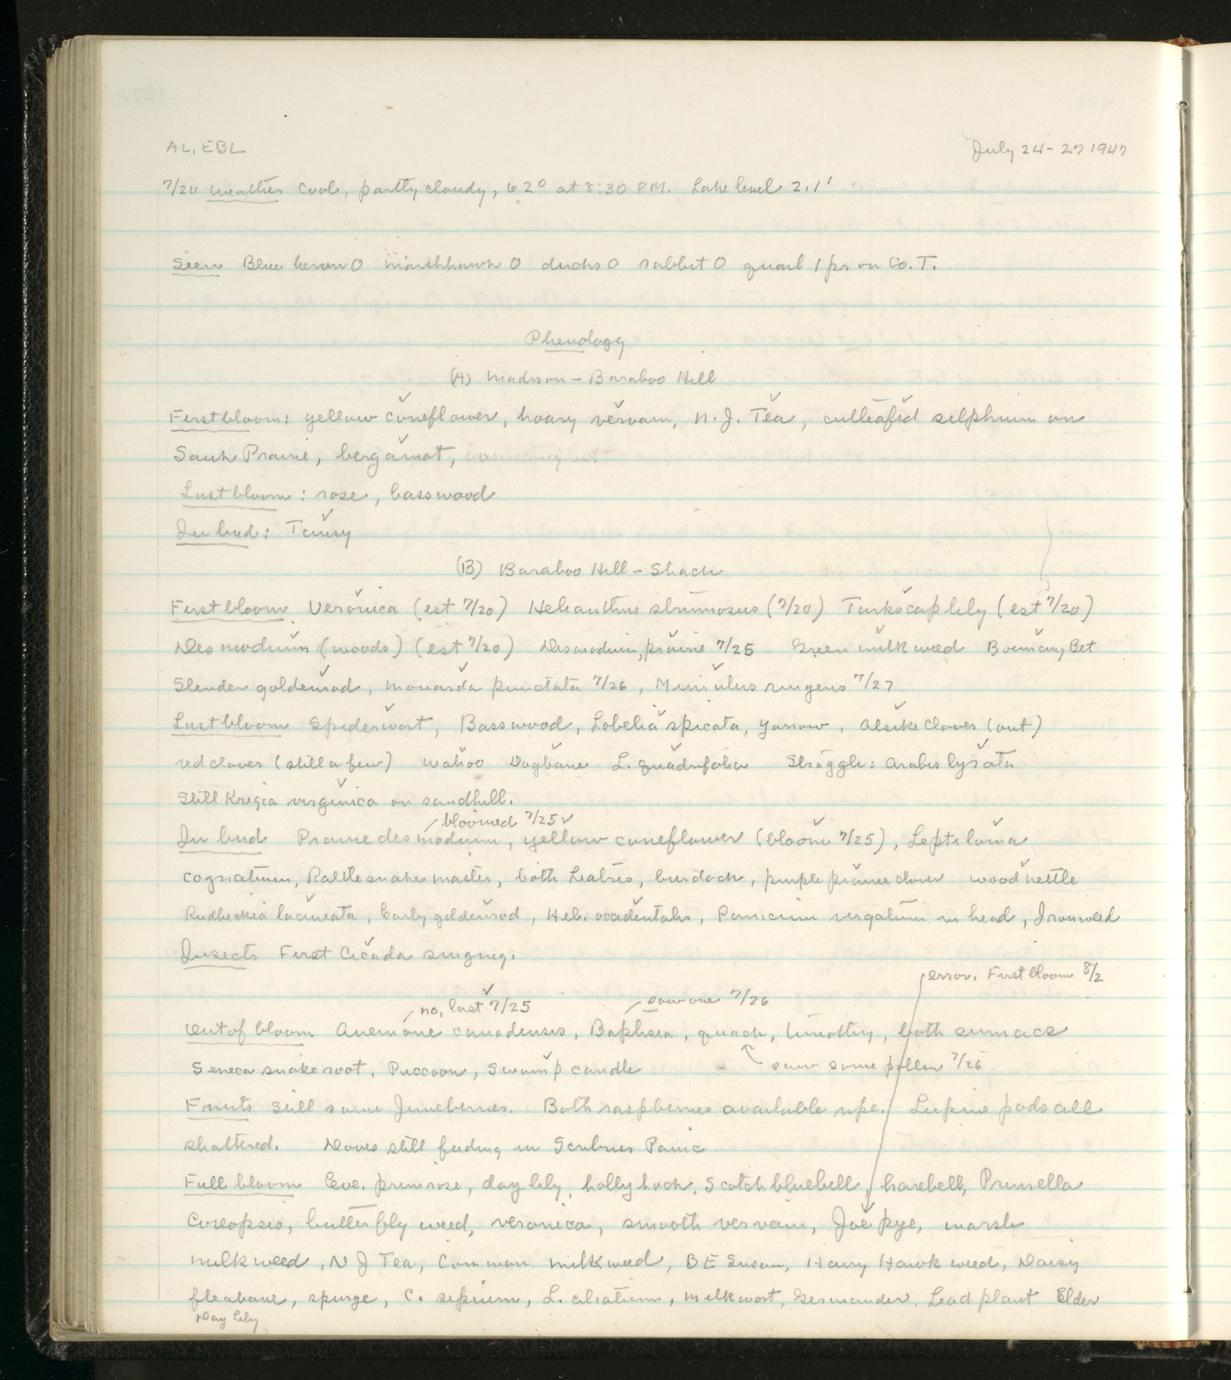 AL, EBL July 24-27 1947
7/24 Weather Cool, partly cloudy, 62° at 8:30 PM. Lake level 2.1'
Seen Blue heron 0 marshhawk 0 ducks 0 rabbit 0 quail 1 pr on Co. T.
Phenology
(A) Madison - Baraboo Hill
First bloom: yellow coneflower, hoary vervain, N. J. Tea, cutleafed silphium on
Sauk Prairie, bergamot,
Last bloom: rose, basswood
In bud: Tansy
(B) Baraboo Hill - Shack
First bloom Veronica (est 7/20) Helianthus strumosus (7/20) Turkscap lily (est 7/20)
Desmodium (woods) (est 7/20) Desmodium, prairie 7/25 Green milkweed Bouncing Bet
Slender goldenrod, monarda punctata 7/26, Mimulus ringens 7/27
Last bloom Spiderwort, Basswood, Lobelia spicata, yarrow, Alsike clover (out)
red clover (still a few) wahoo Dogbane L. quadrifolia Straggle: Arabis lyrata
Still Krigia virginica on sandhill.
bloomed 7/25
In bud Prairie desmodium, yellow coneflower (bloom 7/25), Leptoloma
cognatum, Rattlesnake master, both Liatris, burdock, purple prairie clover wood nettle
Rudbeckia laciniata, Early goldenrod, Hel. occidentalis, Panicum virgatum in head, Ironweed
Insects First Cicada singing.
error. First bloom 8/2
no, last 7/25 saw one 7/26
Out of bloom Anemone canadensis, Baptisia, quack, timothy, both sumacs
Seneca snakeroot, Puccoon, Swamp candle saw some pollen 7/26
Fruits Still some Juneberries. Both raspberries available ripe. Lupine pods all
shattered. Doves still feeding in Scribners Panic
Full bloom Eve. primrose, day lily, hollyhock, Scotch bluebell, harebell, Prunella
Coreopsis, butterfly weed, veronica, smooth vervain, Joe pye, marsh
milkweed, N J Tea, Common milkweed, B E Susan, Hairy Hawkweed, Daisy
fleabane, spurge, C. sepium, L. ciliatum, milkwort, Germander, Lead plant Elder
Day lily